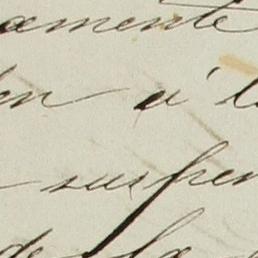 amente
en a' l
suspen
de la